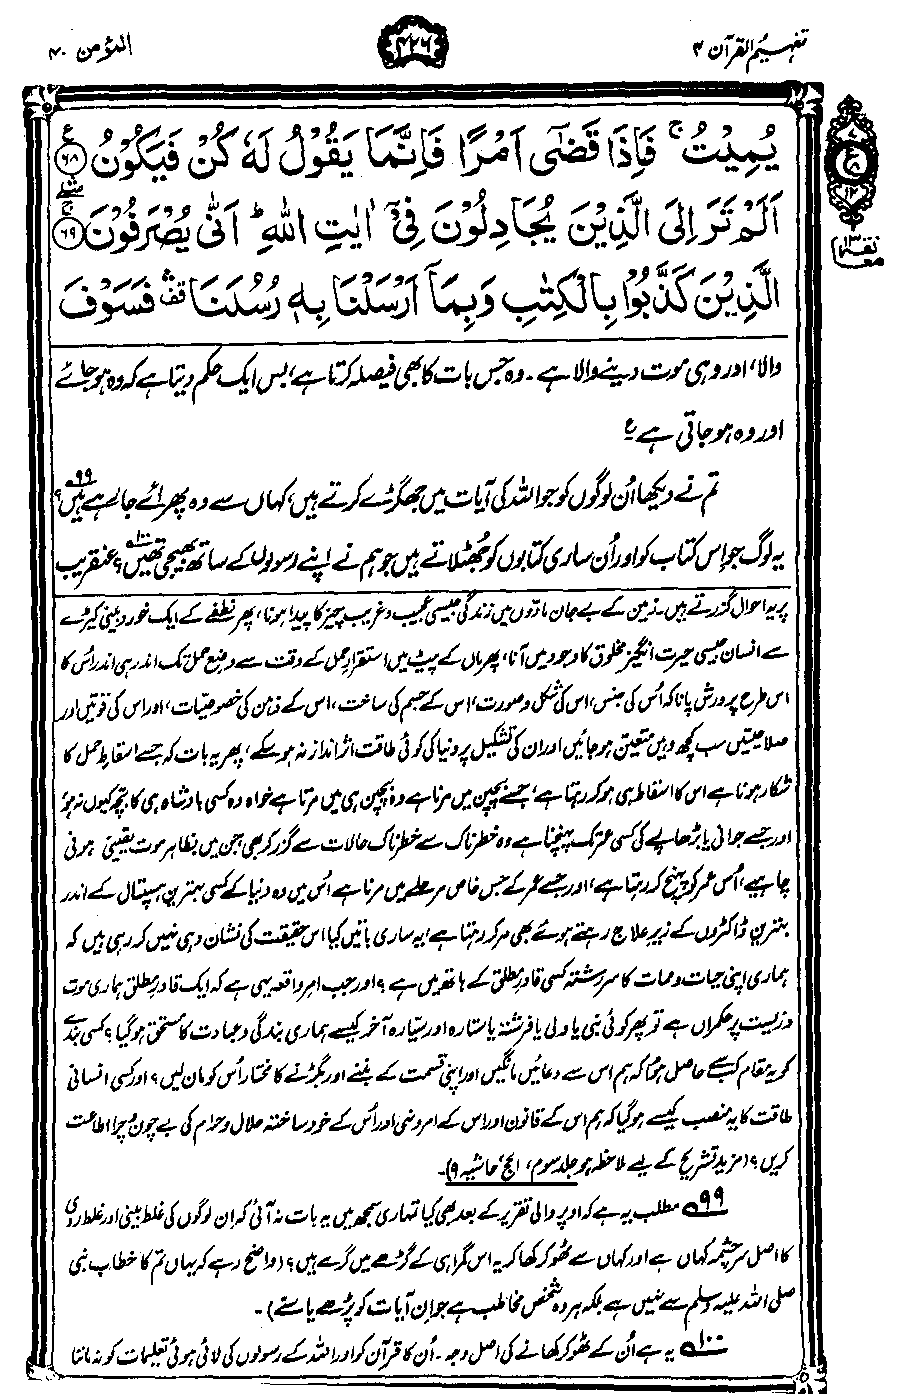 تفہیم القرآن ۴
۴۲۶
المؤمن ۴۰
يُمِيْتُ ۚ فَاِذَا قَضٰۤى اَمْرًا فَاِنَّمَا يَقُوْلُ لَهٗ كُنْ فَيَكُوْنُ ﴿۶۸﴾
اَلَمْ تَرَ اِلَى الَّذِيْنَ يُجَادِلُوْنَ فِيْۤ اٰيٰتِ اللّٰهِ ؕ اَنّٰى يُصْرَفُوْنَ ﴿۶۹﴾
الَّذِيْنَ كَذَّبُوْا بِالْكِتٰبِ وَبِمَاۤ اَرْسَلْنَا بِهٖ رُسُلَنَا ۛ فَسَوْفَ
والا، اور وہی موت دینے والا ہے۔ وہ جس بات کا بھی فیصلہ کرتا ہے، بس ایک حکم دیتا ہے کہ وہ ہو جائے
اور وہ ہو جاتی ہے ع
تم نے دیکھا اُن لوگوں کو جو اللہ کی آیات میں جھگڑے کرتے ہیں، کہاں سے وہ پھرائے جا رہے ہیں؟ ۹۹
یہ لوگ جو اِس کتاب کو اور اُن ساری کتابوں کو جھٹلاتے ہیں جو ہم نے اپنے رسولوں کے ساتھ بھیجی تھیں؟ ۱۰۰ عنقریب
پر یہ احوال گزرتے ہیں۔ زمین کے بے جان مادّوں میں زندگی جیسی عجیب و غریب چیز کا پیدا ہونا، پھر نطفے کے ایک خوردبینی کیڑے
سے انسان جیسی حیرت انگیز مخلوق کا وجود میں آنا، پھر ماں کے پیٹ میں استقرارِ حمل کے وقت سے وضع حمل تک اندر ہی اندر اس کا
اس طرح پرورش پانا کہ اُس کی جنس، اس کی شکل و صورت، اس کے جسم کی ساخت، اس کے ذہن کی خصوصیات، اور اس کی قوتیں اور
صلاحیتیں سب کچھ وہیں متعین ہو جائیں اور ان کی تشکیل پر دنیا کی کوئی طاقت اثر انداز نہ ہو سکے، پھر یہ بات کہ جسے اسقاطِ حمل کا
شکار ہونا ہے اس کا اسقاط ہی ہو کر رہتا ہے، جسے بچپن میں مرنا ہے وہ بچپن ہی میں مرتا ہے خواہ وہ کسی بادشاہ ہی کا بچہ کیوں نہ ہو،
اور جسے جوانی یا بڑھاپے کی کسی عمر تک پہنچنا ہے وہ خطرناک سے خطرناک حالات سے گزر کر بھی جن میں بظاہر موت یقینی ہونی
چاہیے، اُس عمر کو پہنچ کر رہتا ہے، اور جسے عمر کے جس خاص مرحلے میں مرنا ہے اُس میں وہ دنیا کے کسی بہترین ہسپتال کے اندر
بہترین ڈاکٹروں کے زیرِ علاج رہتے ہوئے بھی مر کر رہتا ہے، یہ ساری باتیں کیا اس حقیقت کی نشان دہی نہیں کر رہی ہیں کہ
ہماری اپنی حیات و ممات کا سررشتہ کسی قادرِ مطلق کے ہاتھ میں ہے؟ اور جب امر واقعہ یہی ہے کہ ایک قادرِ مطلق ہماری موت
و زیست پر حکمراں ہے تو پھر کوئی نبی یا ولی یا فرشتہ یا ستارہ اور سیّارہ آخر کیسے ہماری بندگی و عبادت کا مستحق ہو گیا؟ کسی بندے
کو یہ مقام کب سے حاصل ہوا کہ ہم اس سے دعائیں مانگیں اور اپنی قسمت کے بننے اور بگڑنے کا مختار اُس کو مان لیں؟ اور کسی انسانی
طاقت کا یہ منصب کیسے ہو گیا کہ ہم اس کے قانون اور اس کے امر و نہی اور اُس کے خود ساختہ حلال و حرام کی بے چون و چرا اطاعت
کریں؟ (مزید تشریح کے لیے ملاحظہ ہو جلد سوم، الحج، حاشیہ ۹)۔
۹۹ مطلب یہ ہے کہ اوپر والی تقریر کے بعد بھی کیا تمہاری سمجھ میں یہ بات نہ آئی کہ ان لوگوں کی غلط بینی اور غلط روی
کا اصل سرچشمہ کہاں ہے اور کہاں سے ٹھوکر کھا کر یہ اس گمراہی کے گڑھے میں گرے ہیں؟ (واضح رہے کہ یہاں تم کا خطاب نبی
صلی اللہ علیہ وسلم سے نہیں ہے بلکہ ہر وہ شخص مخاطب ہے جو اِن آیات کو پڑھے یا سنے)۔
۱۰۰ یہ ہے اُن کے ٹھوکر کھانے کی اصل وجہ۔ اُن کا قرآن کو اور اللہ کے رسولوں کی لائی ہوئی تعلیمات کو نہ ماننا